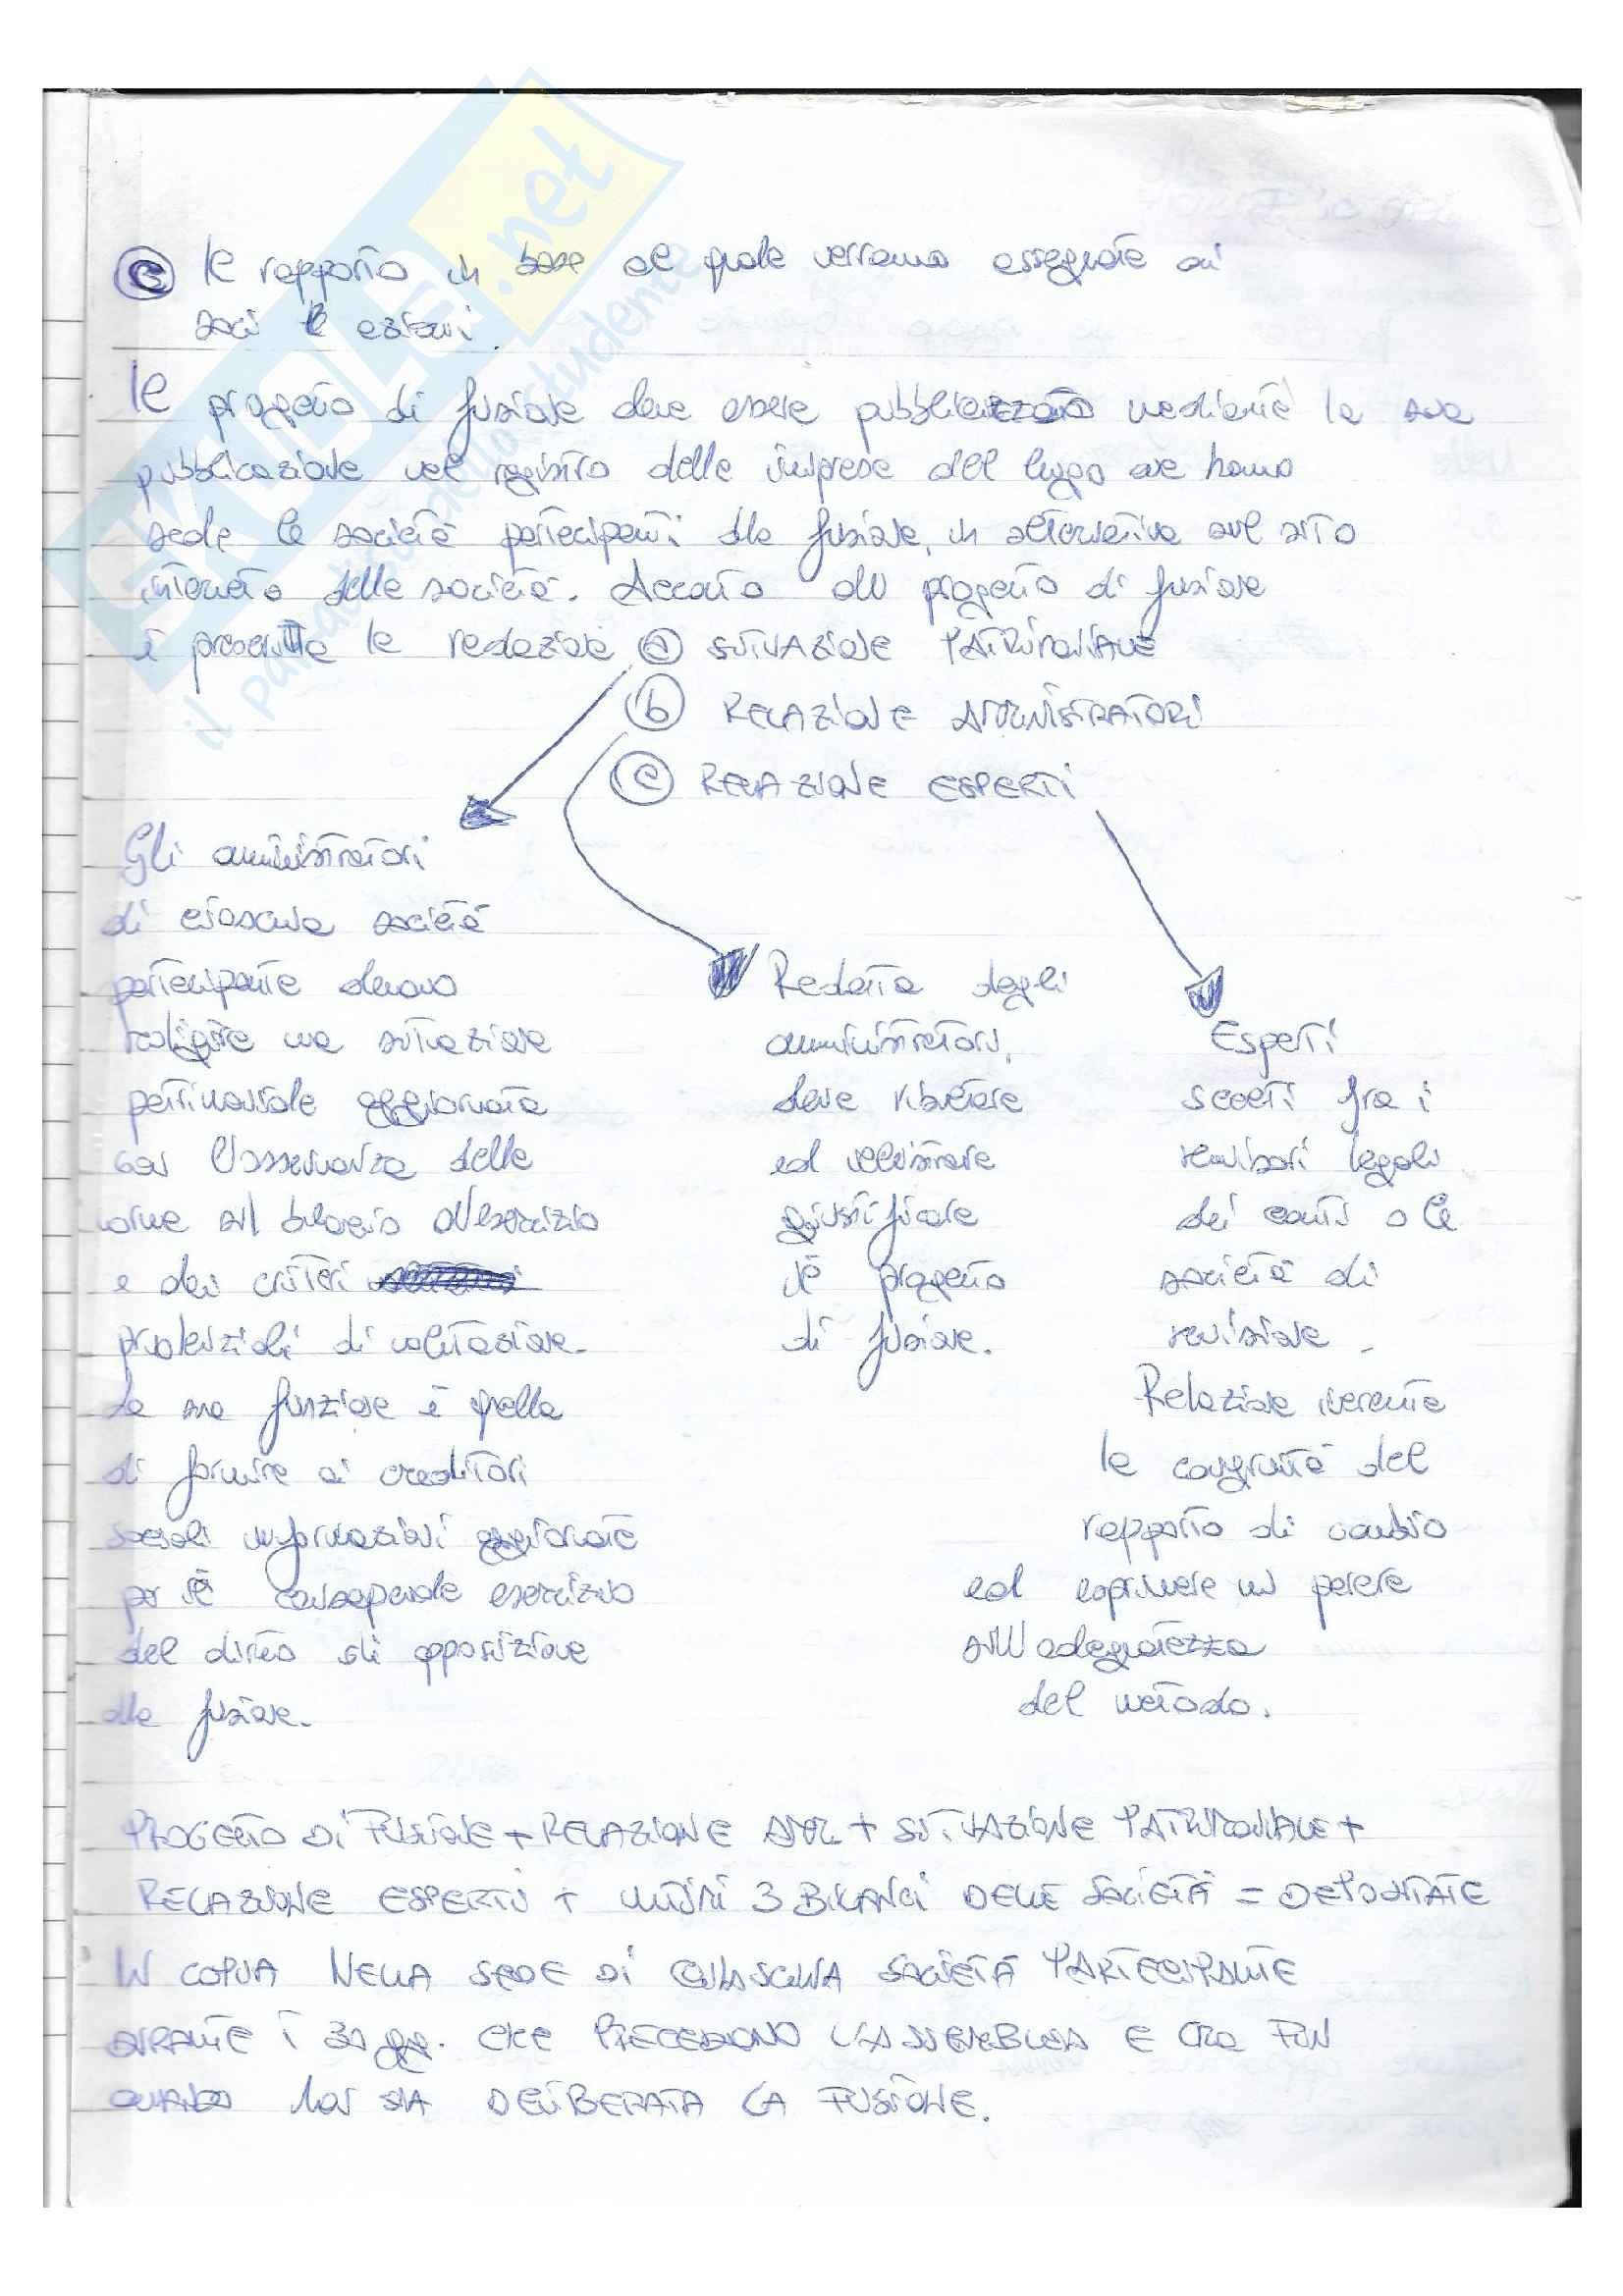 SKUOLA.net
il paradiso dello studente
c) Il rapporto in base al quale verranno assegnate ai
soci le azioni.
Il progetto di fusione deve essere pubblicizzato mediante la sua
pubblicazione nel registro delle imprese del luogo ove hanno
sede le società partecipanti alla fusione, in alternativa sul sito
internet delle società. Accanto al progetto di fusione
è prescritta la redazione a) SITUAZIONE PATRIMONIALE
b) RELAZIONE AMMINISTRATORI
c) RELAZIONE ESPERTI
Gli amministratori
di ciascuna società
partecipante devono
redigere una situazione
patrimoniale aggiornata
con l'osservanza delle
norme sul bilancio d'esercizio
e dei criteri
prudenziali di valutazione.
La sua funzione è quella
di fornire ai creditori
sociali informazioni aggiornate
per il consapevole esercizio
del diritto di opposizione
alla fusione.
Redatta dagli
amministratori,
deve illustrare
ed
giustificare
il progetto
di fusione.
Esperti
scelti fra i
revisori legali
dei conti o le
società di
revisione.
Relazione inerente
la congruità del
rapporto di cambio
ed esprimere un parere
sull'adeguatezza
del metodo.
PROGETTO DI FUSIONE + RELAZIONE AMM + SITUAZIONE PATRIMONIALE +
RELAZIONE ESPERTI + ULTIMI 3 BILANCI DELLE SOCIETÀ = DEPOSITATE
IN COPIA NELLA SEDE DI CIASCUNA SOCIETÀ PARTECIPANTE
DURANTE I 30 gg. CHE PRECEDONO L'ASSEMBLEA E FIN
QUANDO NON SIA DELIBERATA LA FUSIONE.